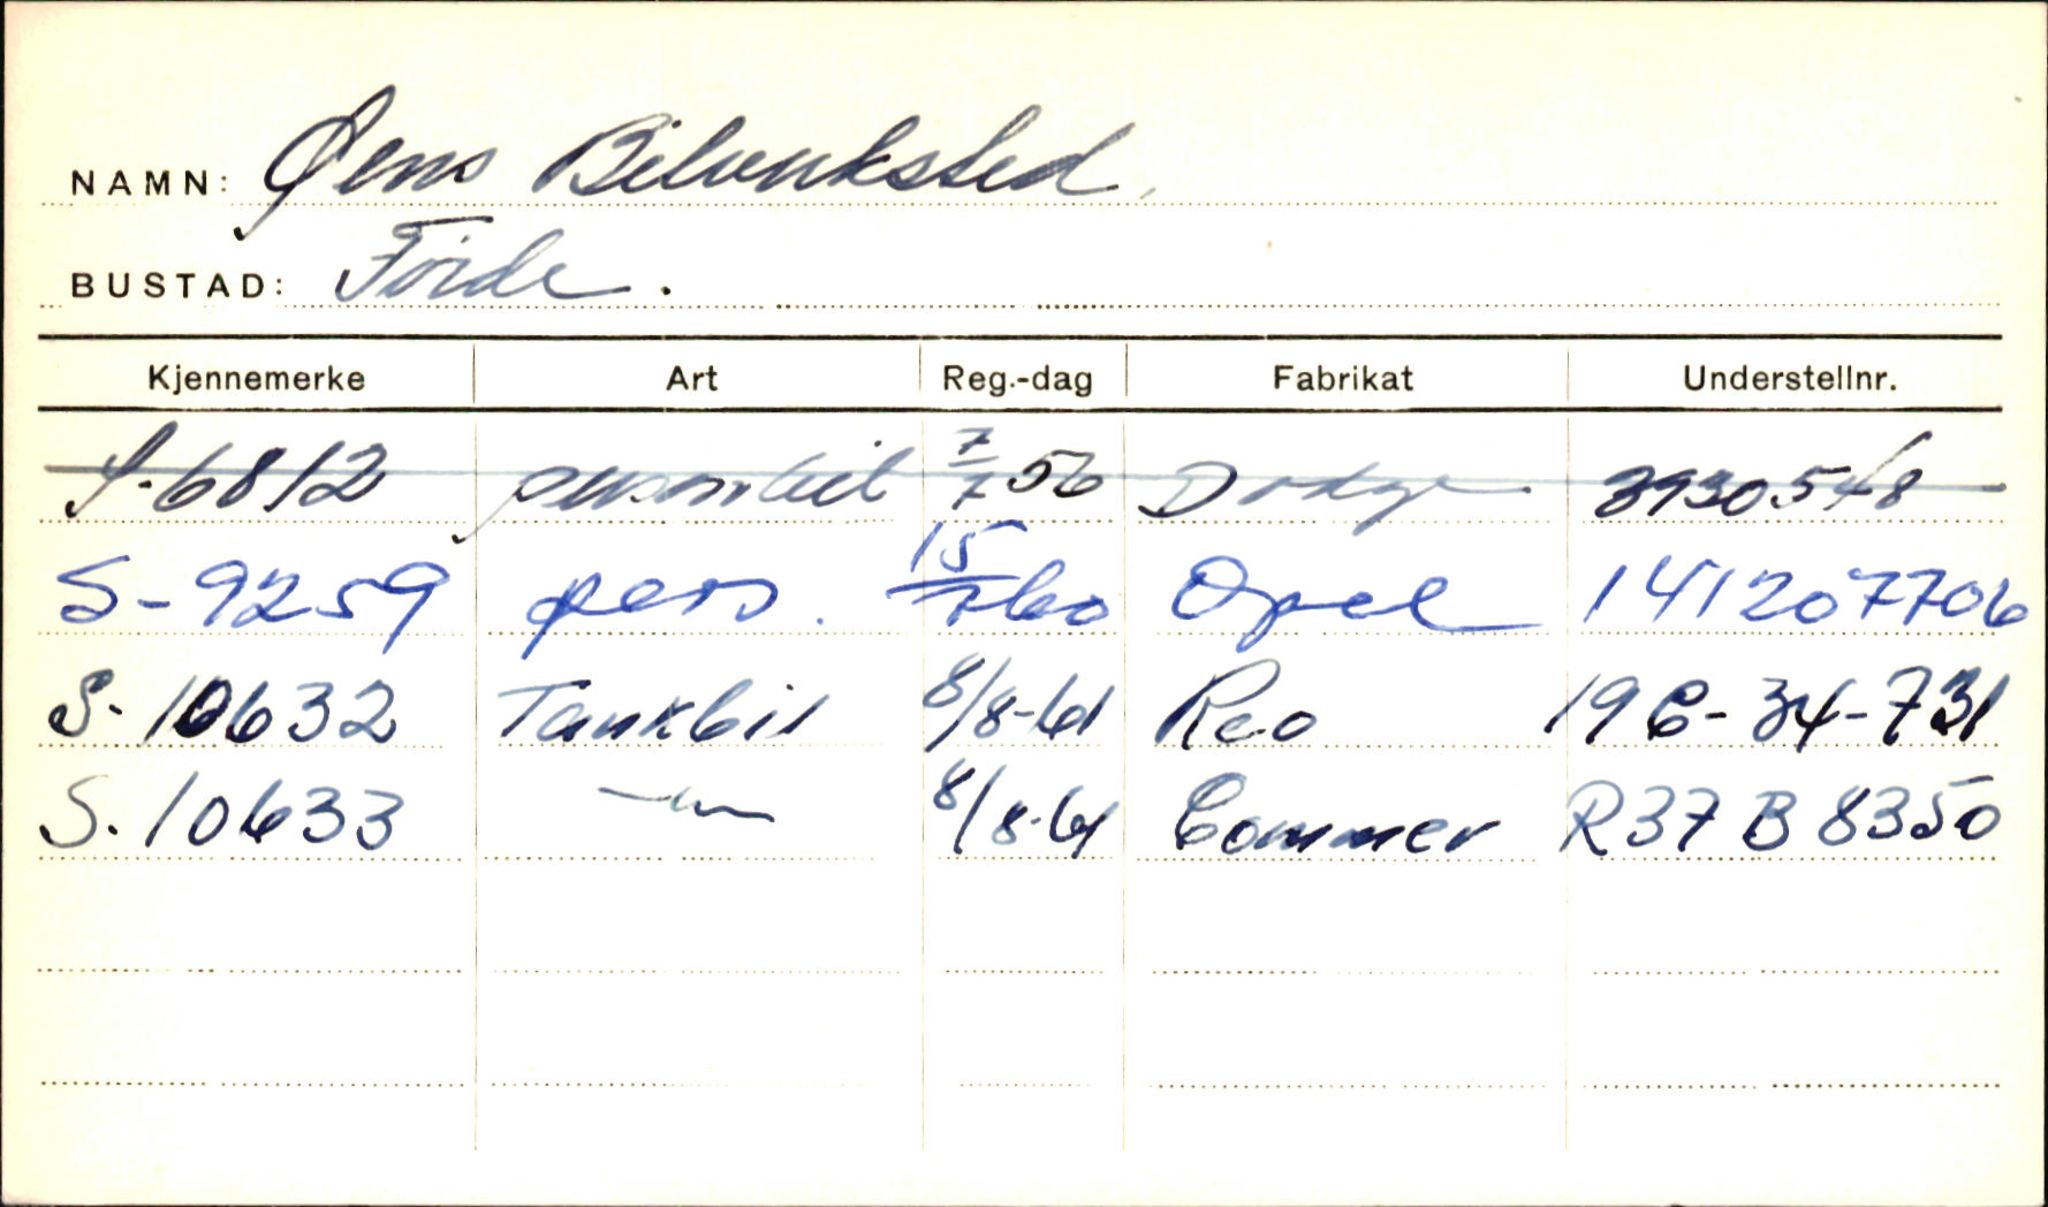 NAMN: Øens Bilverksted
BUSTAD: Förde.
Kjennemerke Art Reg.-dag Fabrikat Understellnr.
S-6812 personbil 7/7 56 Dodge 3930548
S-9259 pers. 15/7 60 Opel 141207706
S-10632 Tankbil 8/8-61 Reo 19C-34-731
S.10633 —"— 8/8-61 Commer R37 B 8350